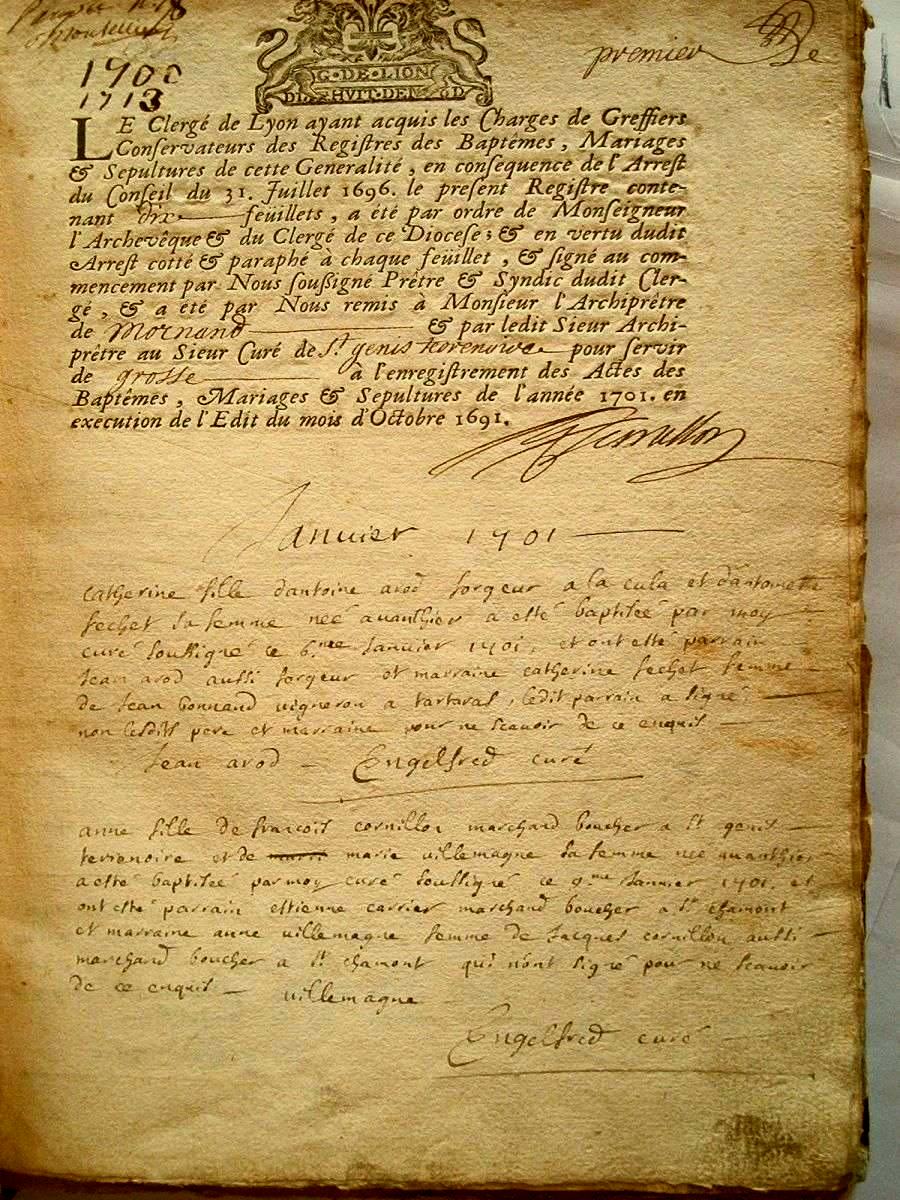 premier
1701
1713
G·DE·LION
HVIT·DEN
LE Clergé de Lyon ayant acquis les Charges de Greffiers
Conservateurs des Registres des Baptêmes, Mariages
& Sepultures de cette Generalité, en consequence de l'Arrest
du Conseil du 31. Juillet 1696. le present Registre conte-
nant dix feuillets, a été par ordre de Monseigneur
l'Archevêque & du Clergé de ce Diocese; & en vertu dudit
Arrest cotté & paraphé à chaque feüillet, & signé au com-
mencement par Nous soussigné Prêtre & Syndic dudit Cler-
gé, & a été par Nous remis à Monsieur l'Archiprêtre
de Mornand & par ledit Sieur Archi-
prêtre au Sieur Curé de St genis terenoire pour servir
de grosse à l'enregistrement des Actes des
Baptêmes, Mariages & Sepultures de l'année 1701. en
execution de l'Edit du mois d'Octobre 1691.
Ianuier 1701
catherine fille dantoine arod forgeur a la cula et dantoinette
fechet sa femme neé auanthier a esté baptiseé par moy
curé soussigné ce 6.me Ianuier 1701, et ont esté parrain
Iean arod aussi forgeur et marraine catherine fechet femme
de Iean bonnand uigneron a tartaras, ledit parrain a signé
non lesdits pere et marraine pour ne scauoir de ce enquis
Iean arod Engelfred curé
anne fille de francois cornillon marchand boucher a st genis
terrenoire et de marie uillemagne sa femme neé auanthier
a esté baptiseé par moy curé soussigné ce 9.me Ianuier 1701. et
ont esté parrain estienne carrier marchand boucher a st chamont
et marraine anne uillemagne femme de Iacques cornillon aussi
marchand boucher a st chamont qui n'ont signé pour ne scauoir
de ce enquis uillemagne
Engelfred curé